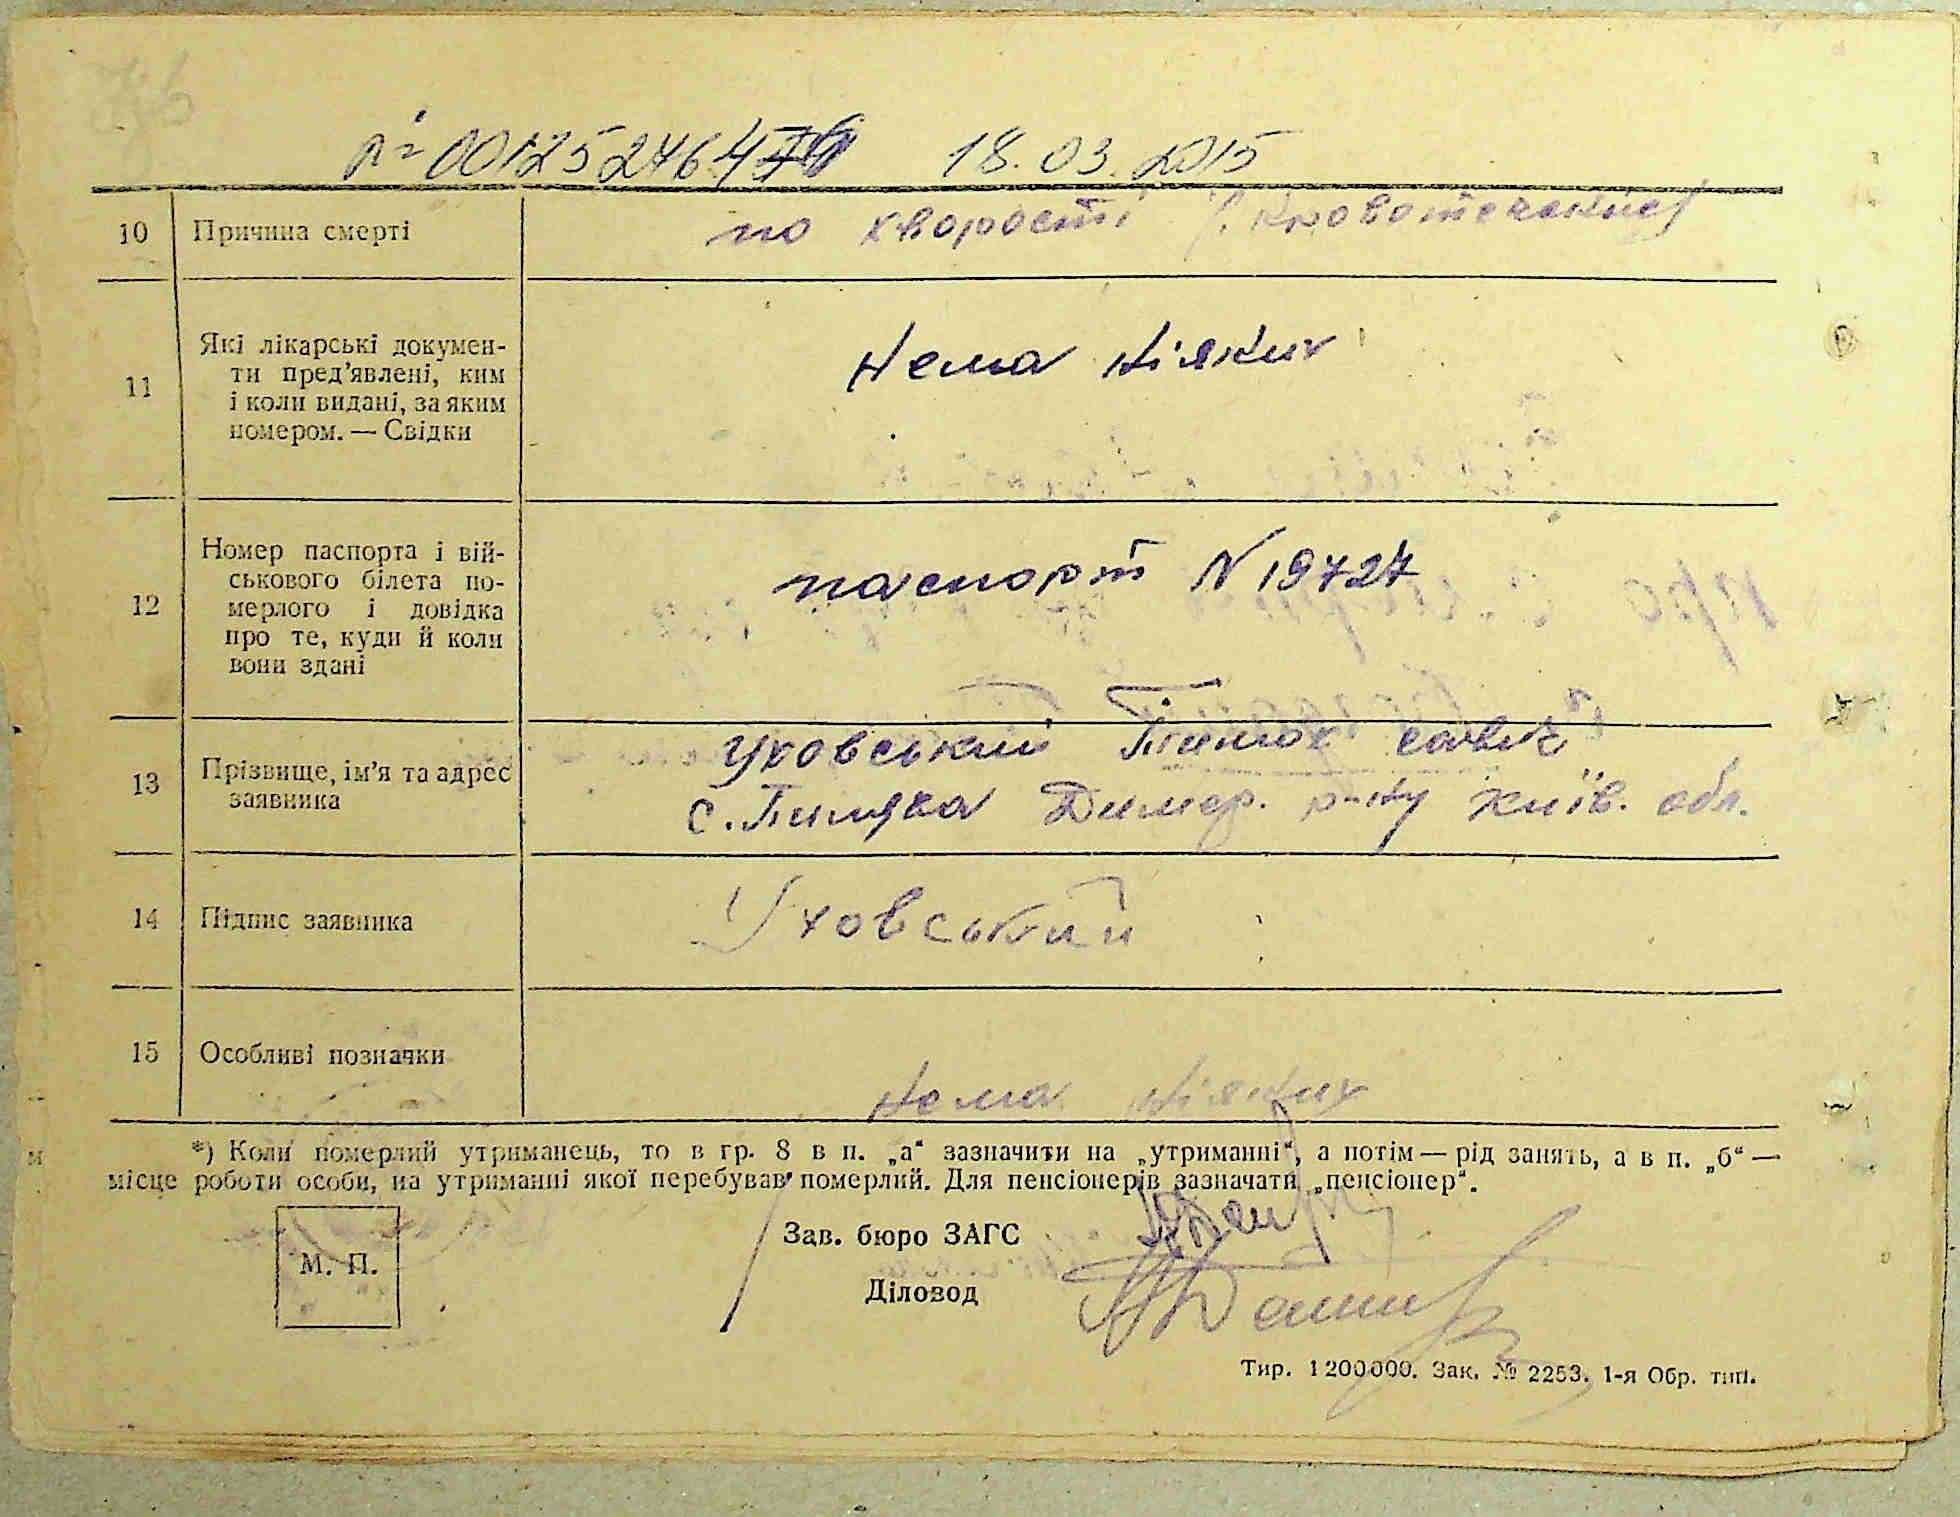 18.03.2015
10 Причина смерті по хворості (кровотечение)
11 Які лікарські докумен-
ти пред'явлені, ким
і коли видані, за яким
номером. — Свідки
Нема ніяких
12 Номер паспорта і вій-
ськового білета по-
мерлого і довідка
про те, куди й коли
вони здані
паспорт N 19727
13 Прізвище, ім'я та адрес
заявника
Уховський
с. Димер. р-ну Київ. обл.
14 Підпис заявника Уховський
15 Особливі позначки
Нема ніяких
*) Коли померлий утриманець, то в гр. 8 в п. „а“ зазначити на „утриманні“, а потім — рід занять, а в п. „б“ —
місце роботи особи, на утриманні якої перебував померлий. Для пенсіонерів зазначати „пенсіонер“.
М. П.
Зав. бюро ЗАГС
Діловод
Тир. 1200000. Зак. № 2253. 1-я Обр. тип.